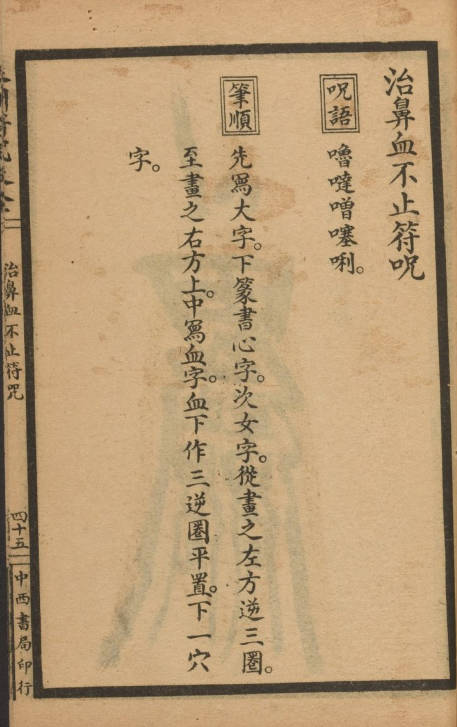 治鼻血不止符呪
呪語
嚕噠噌噻唎。
筆順
先寫大字。下篆書心字。次女字。從畫之左方逆三圈。
至畫之右方上。中寫血字。血下作三逆圈平置。下一穴
字。
治鼻血不止符呪
四十五
中西書局印行